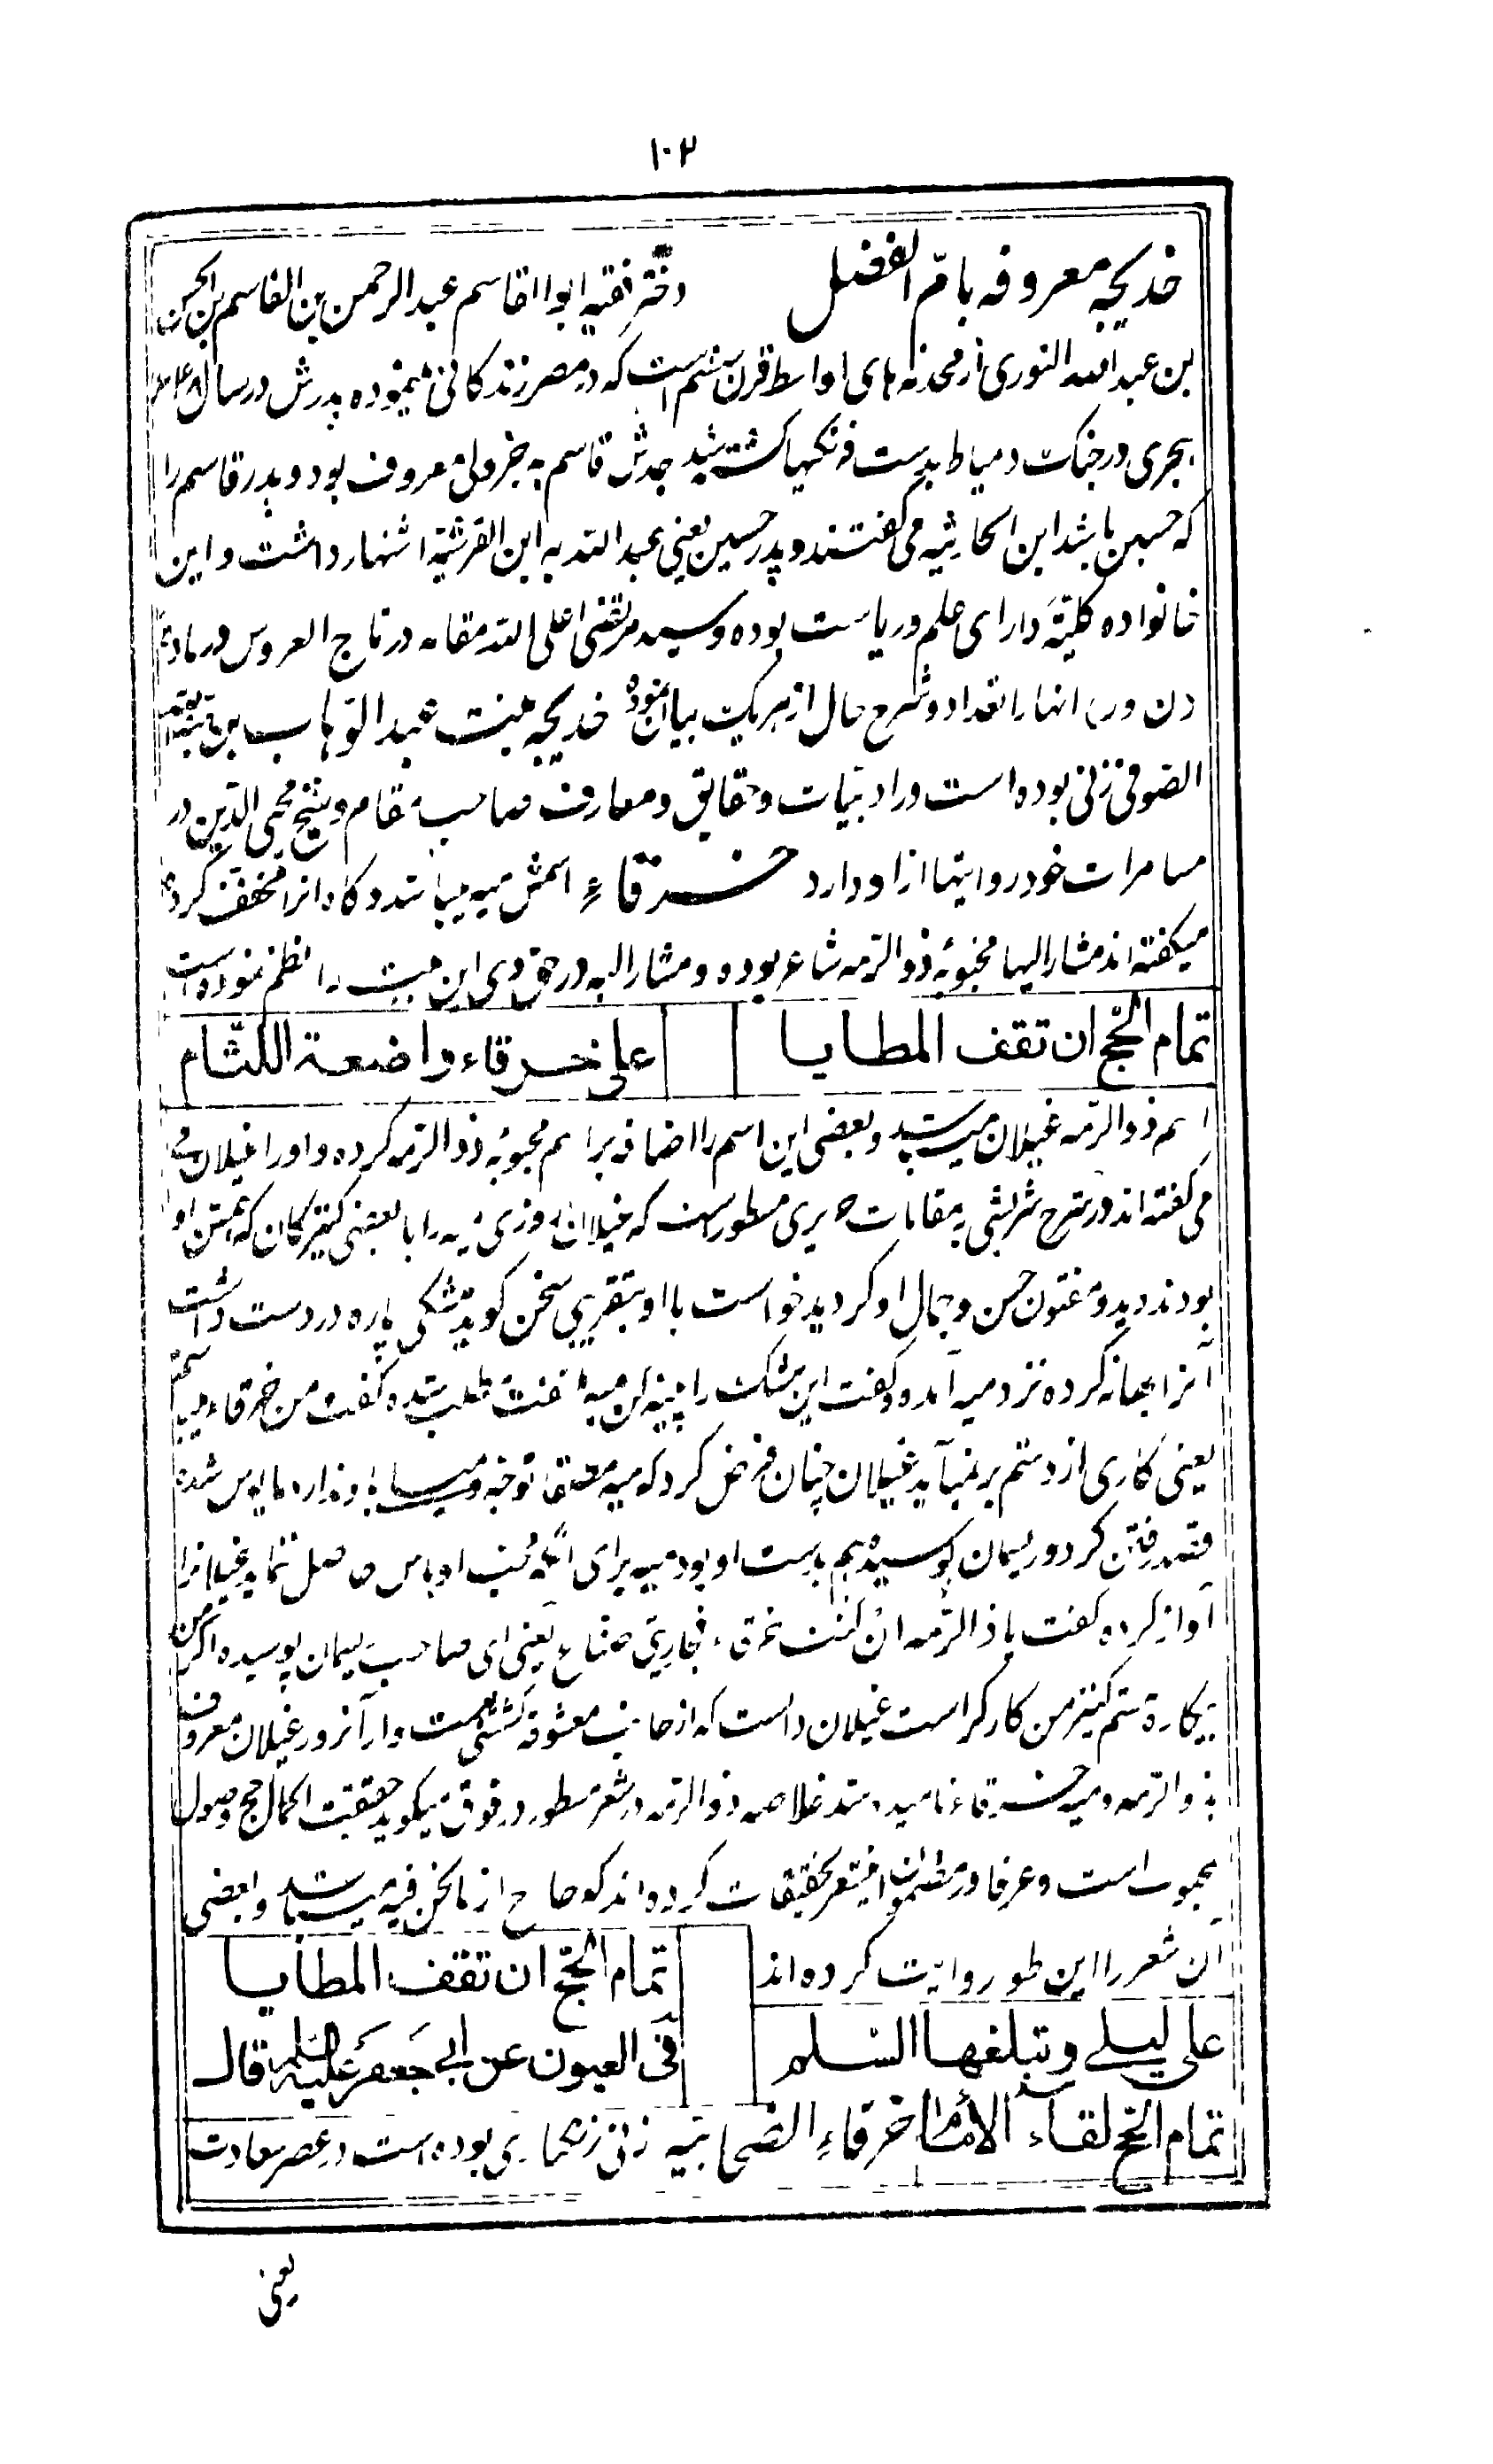 ۱۰۲
خدیجه معروفه بامّ الفضل دختر فقیه ابوالقاسم عبدالرحمن بن القاسم بن الحسین
بن عبدالله النوری از محدثه های اواسط قرن ششم است که در مصر زندکانی مینموده پدرش در سال ۶۴۸
هجری در جنک دمیاط بدست فرنکیها کشته شد جدش قاسم به جزولی معروف بود و پدر قاسم را
که حسین باشد ابن الحارثیه می کفتند و پدر حسین یعنی عبدالله به ابن القرشیة اشتهار داشت و این
خانواده کلیةً دارای علم و ریاست بوده و سید مرتضی اعلی الله مقامه در تاج العروس در مادهٔ
(ن ور) انها را تعداد و شرح حال از هریک بیان نموده خدیجه بنت عبدالوهّاب بن هبة الله
الصوفی زنی بوده است در ادبیات و حقایق و معارف صاحب مقام و شیخ محی الدّین در
مسامرات خود روایتها از او دارد خرقاء اسمش میه میباشد و کاه انرا مخفّف کرده
میکفته اند مشار الیها محبوبهٔ ذو الرّمه شاعر بوده و مشار الیه در حق وی این بیت را نظم نموده است
تمام الحج ان تقف المطایا علی خرقاء واضعة اللثام
اسم ذو الرّمه غیلان میباشد و بعضی این اسم را اضافه بر اسم محبوبهٔ ذو الرّمه کرده و او را غیلان میّ
می کفته اند در شرح شریشی بر مقامات حریری مسطور است که غیلان روزی میه را با بعضی کنیزکان که همسن او
بودند دید و مفتون حسن و جمال او کردید خواست با او بتقریبی سخن کوید مشکی پاره در دست داشت
آنرا بهانه کرده نزد میه آمد و کفت این مشک را پینه کن میه ملتفت مطلب شده کفت من خرقاء هستم
یعنی کاری از دستم بر نمیآید غیلان چنان فرض کرد که میه معنًا توجه و میلی باو ندارد مایوس شده
قصد رفتن کرد و ریسمان پوسیده هم بدست او بود میه برای آنکه مبادا او یاس حاصل نماید غیلانرا
آواز کرده کفت یا ذا الرّمه ان کنت خرقاء فجاریتی صناع یعنی ای صاحب ریسمان پوسیده اکر من
بیکاره هستم کنیز من کارکر است غیلان دانست که از جانب معشوقه کششی هست و از آنروز غیلان معروف
بذو الرّمه و میه خرقاء نامیده شد خلاصه ذو الرّمه در شعر مسطور در فوق میکوید حقیقت اکمال حج وصول
بمحبوب است و عرفا در مضمون این شعر تحقیقات کرده اند که خارج از ما نحن فیه میباشد و بعضی
آن شعر را این طور روایت کرده اند تمام الحج ان تقف المطایا
علی لیلی و تبلغها السّلم فی العیون عن ابی جعفر علیه السلم قال
تمام الحج لقاء الامام خرقاء الصحابیه زنی زنکباری بوده است در عصر سعادت
یعنی